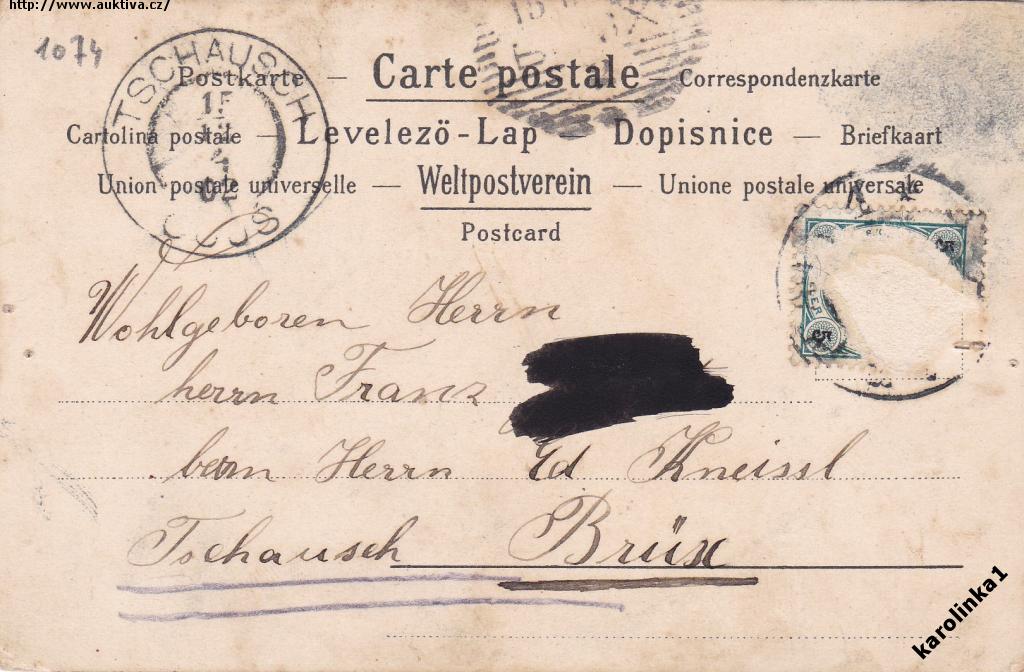 http://www.auktiva.cz/
1074
TSCHAUSCH
15
02
Postkarte — Carte postale — Correspondenzkarte
Cartolina postale — Levelező-Lap — Dopisnice — Briefkaart
Union postale universelle — Weltpostverein — Unione postale universale
Postcard
5
5
Wohlgeboren Herrn
herrn Franz
beim Herrn Ed Kneissl
Tschausch Brüx
karolinka1